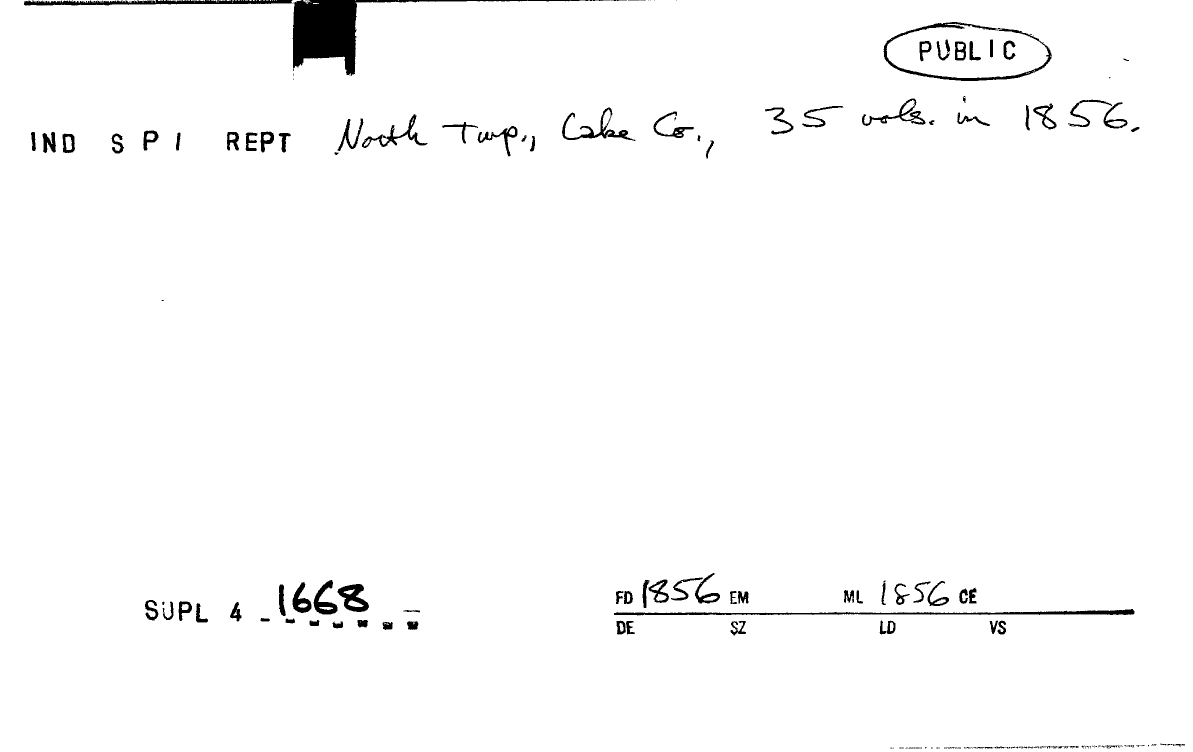 PUBLIC
IND S P I REPT North Twp., Lake Co., 35 vols. in 1856.
SUPL 4 1668
FD 1856 EM ML 1856 CE
DE SZ LD VS